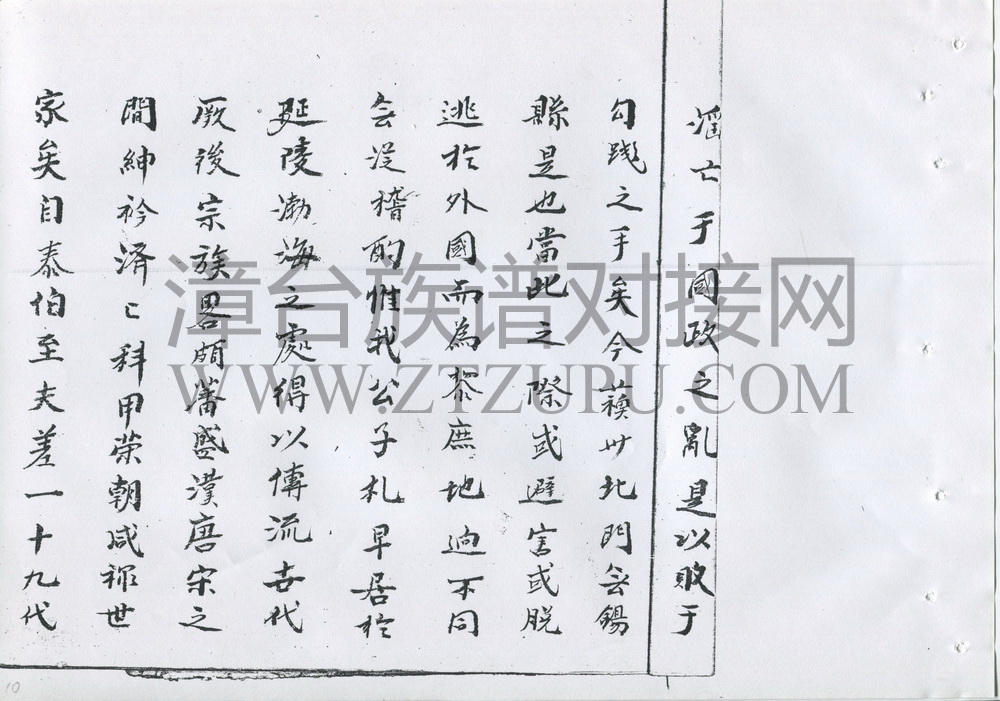 滛亡于國政之亂是以敗于
勾踐之手矣今蘓卅北門無錫
縣是也當此之際或避害或脱
逃於外國而為黎庶地逈不同
無従稽酌惟我公子札早居於
延陵渤海之處得以傳流古代
厥後宗族畧頗蕃盛漢唐宋之
間紳衿済〻科甲荣朝咸称世
家矣自泰伯至夫差一十九代
漳台族谱对接网
WWW.ZTZUPU.COM
10